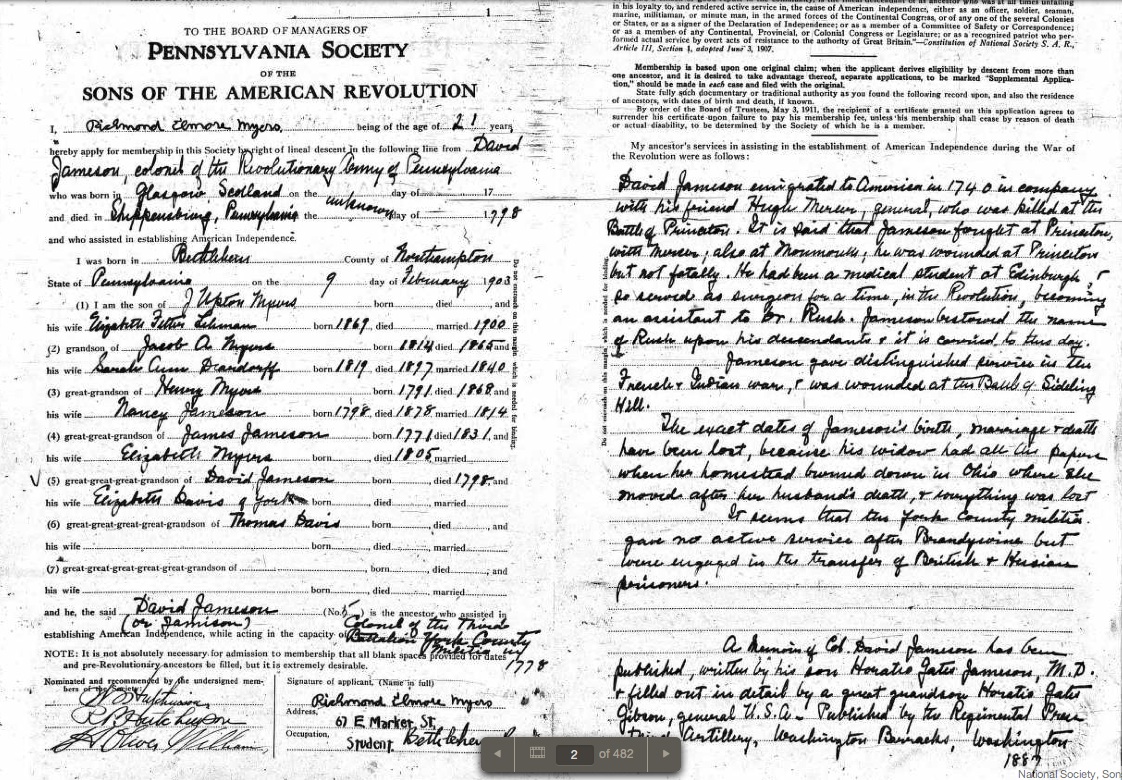 1
TO THE BOARD OF MANAGERS OF
PENNSYLVANIA SOCIETY
OF THE
SONS OF THE AMERICAN REVOLUTION
I, Richmond Elmore Myers, being of the age of 21 years,
hereby apply for membership in this Society by right of lineal descent in the following line from David
Jameson, colonel of the Revolutionary Army of Pennsylvania
who was born in Glasgow Scotland on the day of 17
and died in Shippensburg, Pennsylvania the unknown day of 1798
and who assisted in establishing American Independence.
I was born in Bethlehem County of Northampton
State of Pennsylvania on the 9 day of February 1903
(1) I am the son of J Upton Myers born died and
his wife Elizabeth Fetter Lehman born 1869 died married 1900
(2) grandson of Jacob A. Myers born 1814 died 1865 and
his wife Sarah Ann born 1819 died 1897 married 1840
(3) great-grandson of Henry Myers born 1791 died 1868, and
his wife Nancy Jameson born 1798 died 1878 married 1814
(4) great-great-grandson of James Jameson born 1771 died 1831, and
his wife Elizabeth Myers born died 1805, married
(5) great-great-grandson of David Jameson born, died 1798 and
his wife Elizabeth Davis of York born, died, married
(6) great-great-great-grandson of Thomas Davis born, died, and
his wife born, died, married
(7) great-great-great-great-grandson of born, died, and
his wife born, died, married
and he, the said David Jameson (No. 5) is the ancestor who assisted in
(or Jamison) Colonel of the Third
establishing American Independence, while acting in the capacity of Battalion York County
Militia in
NOTE: It is not absolutely necessary for admission to membership that all blank spaces provided for dates
and pre-Revolutionary ancestors be filled, but it is extremely desirable. 1778
Nominated and recommended by the undersigned members of the Society:
Signature of applicant. (Name in full)
Richmond Elmore Myers
Address,
67 E. Market, St.
Occupation,
Student. Bethlehem
Do not encroach on this margin which is needed for binding.
in his loyalty to, and rendered active service in, the cause of American independence, either as an officer, soldier, seaman,
marine, militiaman, or minute man, in the armed forces of the Continental Congress, or of any one of the several Colonies
or States, or as a signer of the Declaration of Independence; or as a member of a Committee of Safety or Correspondence;
or as a member of any Continental, Provincial, or Colonial Congress or Legislature; or as a recognized patriot who per-
formed actual service by overt acts of resistance to the authority of Great Britain."—Constitution of National Society S. A. R.,
Article III, Section 1, adopted June 3, 1907.
Membership is based upon one original claim; when the applicant derives eligibility by descent from more than
one ancestor, and it is desired to take advantage thereof, separate applications, to be marked "Supplemental Applica-
tion," should be made in each case and filed with the original.
State fully such documentary or traditional authority as you found the following record upon, and also the residence
of ancestors, with dates of birth and death, if known.
By order of the Board of Trustees, May 3, 1911, the recipient of a certificate granted on this application agrees to
surrender his certificate upon failure to pay his membership fee, unless his membership shall cease by reason of death
or actual disability, to be determined by the Society of which he is a member.
My ancestor's services in assisting in the establishment of American Independence during the War of
the Revolution were as follows:
David Jameson emigrated to America in 1740 in company
with his friend Hugh Mercer, general, who was killed at the
Battle of Princeton. It is said that Jameson fought at Princeton,
with Mercer; also at Monmouth; he was wounded at Princeton
but not fatally. He had been a medical student at Edinburgh, &
so served as surgeon for a time, in the Revolution, becoming
an assistant to Dr. Rush. Jameson bestowed the name
of Rush upon his descendants & it is carried to this day.
Jameson gave distinguished service in the
French & Indian war, & was wounded at the Battle of Sideling
Hill.
The exact dates of Jameson's birth, marriage & death
have been lost, because his widow had all his papers
when her homestead burned down in Ohio where she
moved after her husband's death, & everything was lost
It seems that the York County militia
gave no active service after Brandywine but
were engaged in the transfer of British & Hessian
prisoners.
A Memoir of Col. David Jameson has been
published, written by his son Horatio Gates Jameson, M.D.
& filled out in detail by a great grandson Horatio Gates
Gibson, general U.S.A. - Published by the Regimental Press
Third Artillery, Washington Barracks, Washington
Do not encroach on this margin which is needed for binding.
2 of 482
National Society, Son